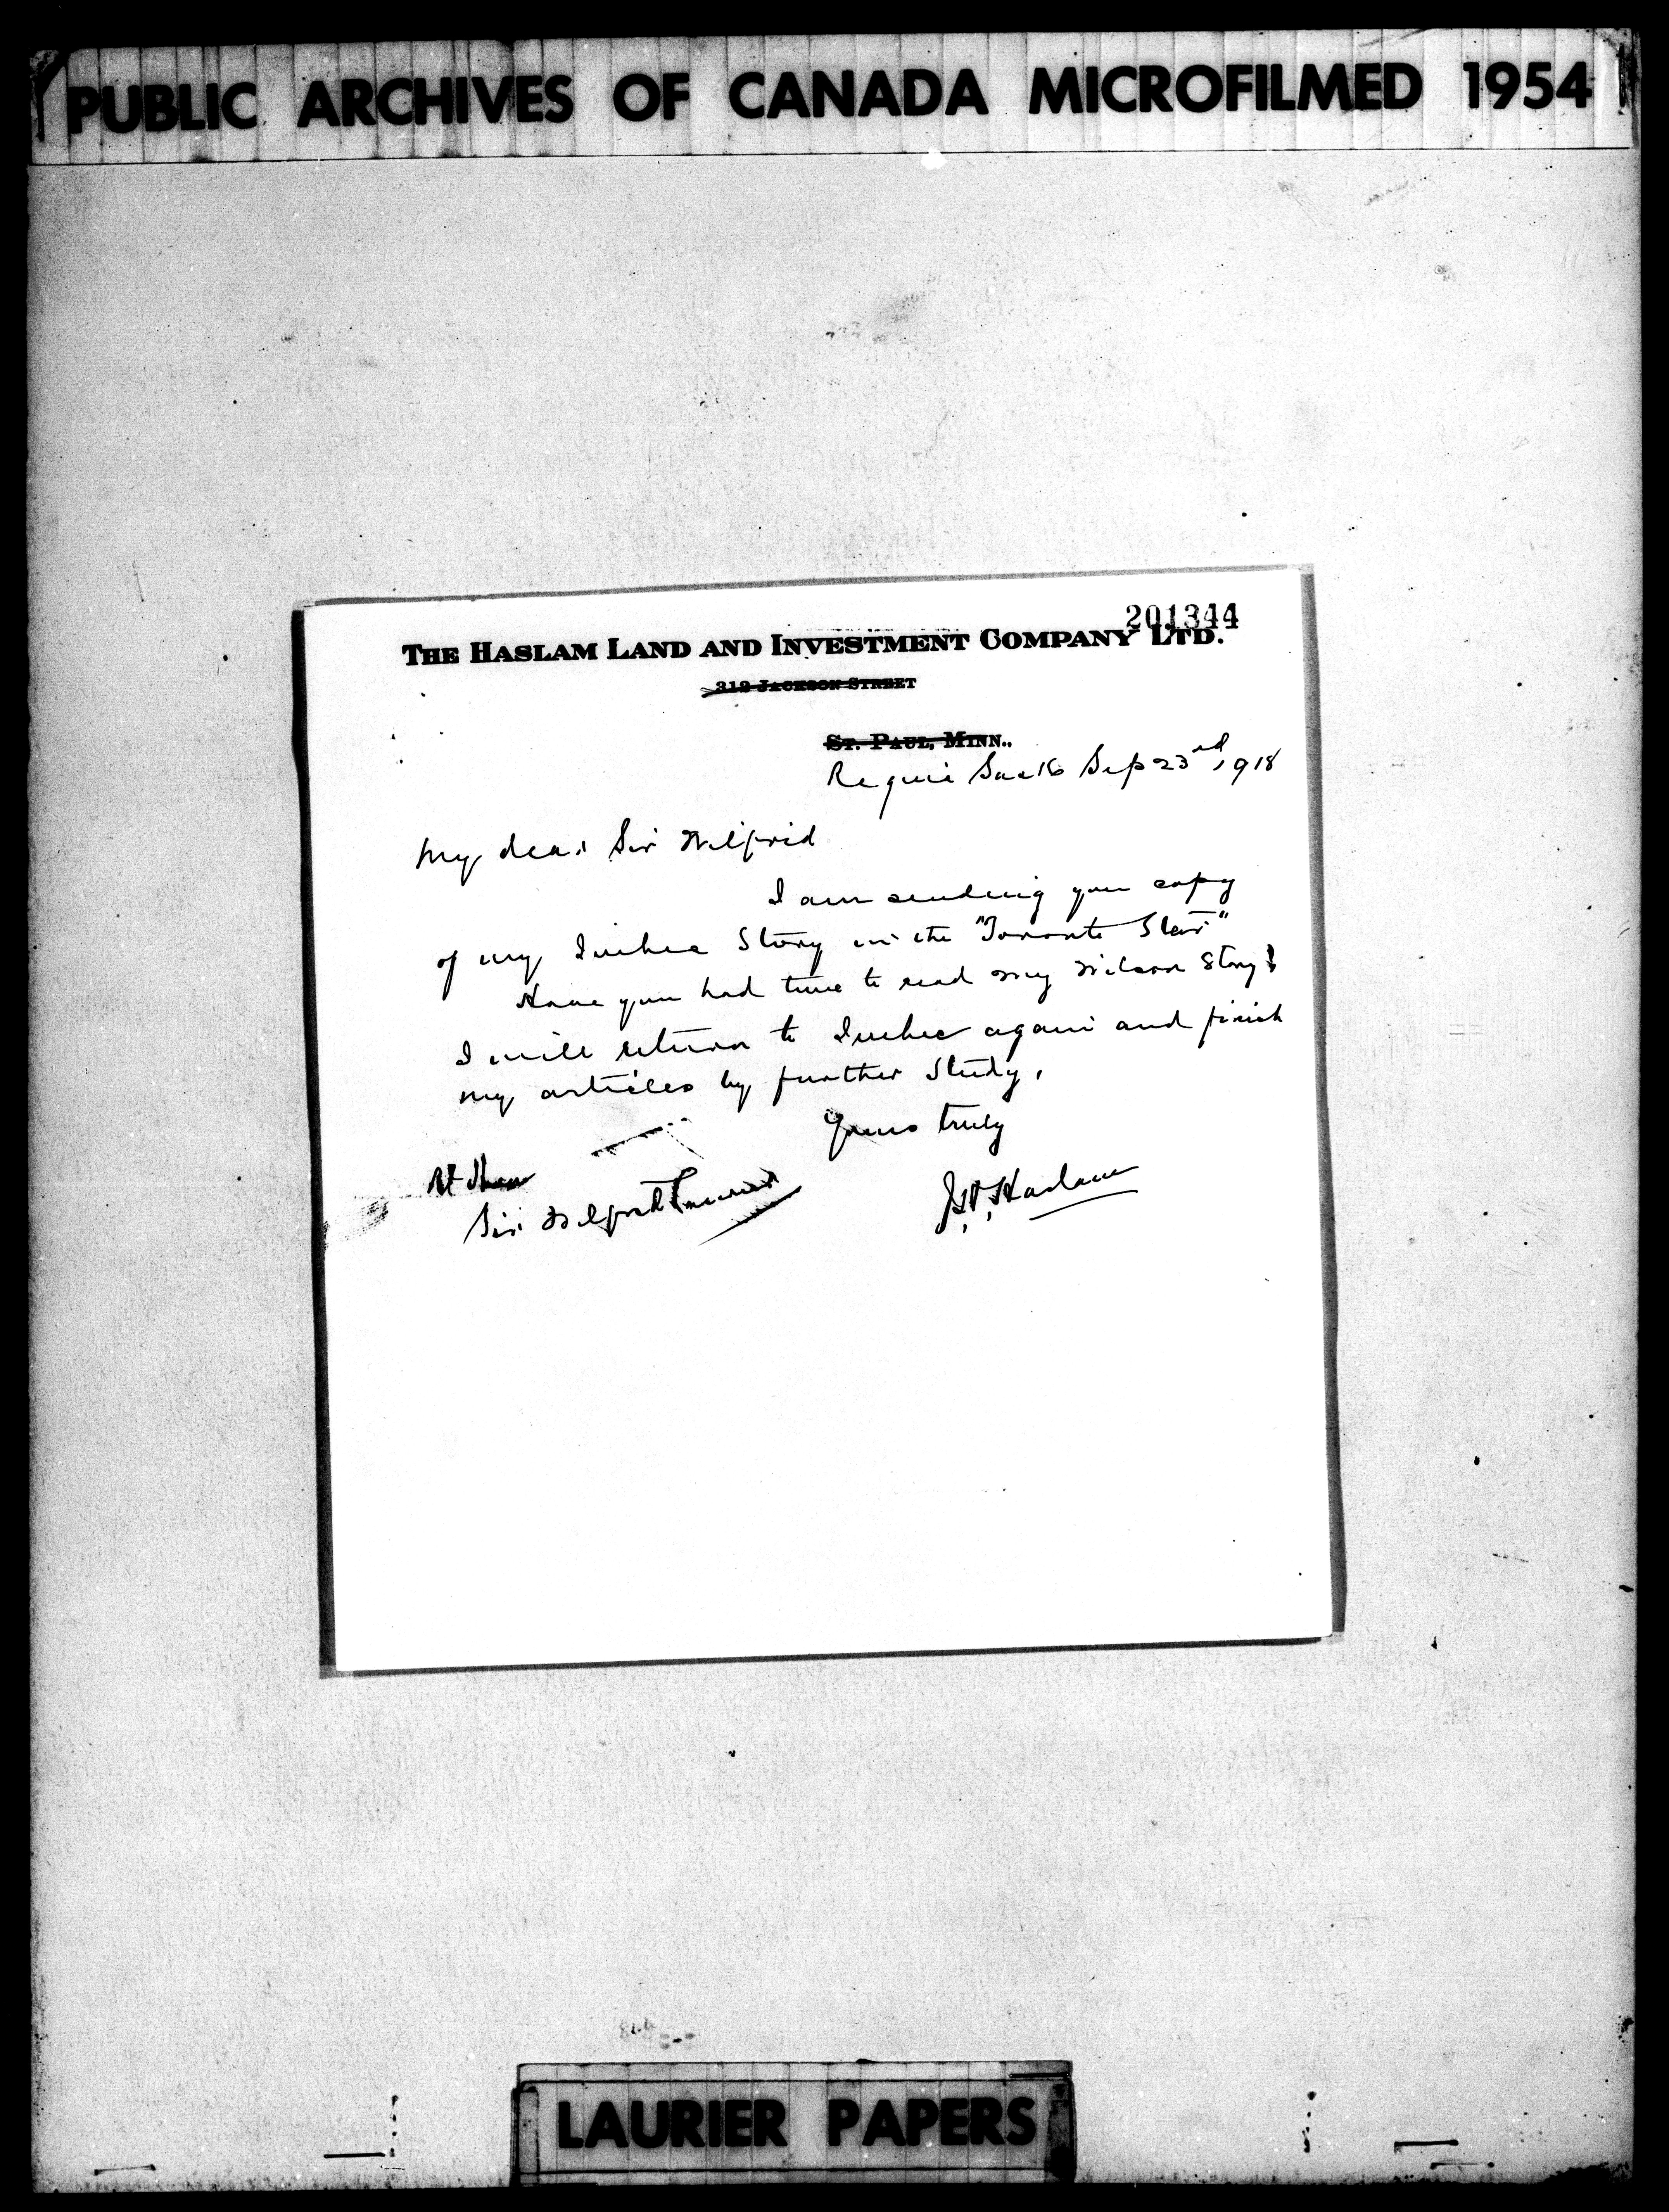 PUBLIC ARCHIVES OF CANADA MICROFILMED 1954
201344
THE HASLAM LAND AND INVESTMENT COMPANY LTD.
319 JACKSON STREET
ST. PAUL, MINN..
Regina Sask Sep 23rd, 1918
My dear Sir Wilfrid
I am sending you copy
of my Quebec Story in the "Toronto Star"
Have you had time to read my Wilson Story?
I will return to Quebec again and finish
my articles by further Study.
Yours truly
J.H. Haslam
Rt Hon
Sir Wilfrid Laurier
LAURIER PAPERS